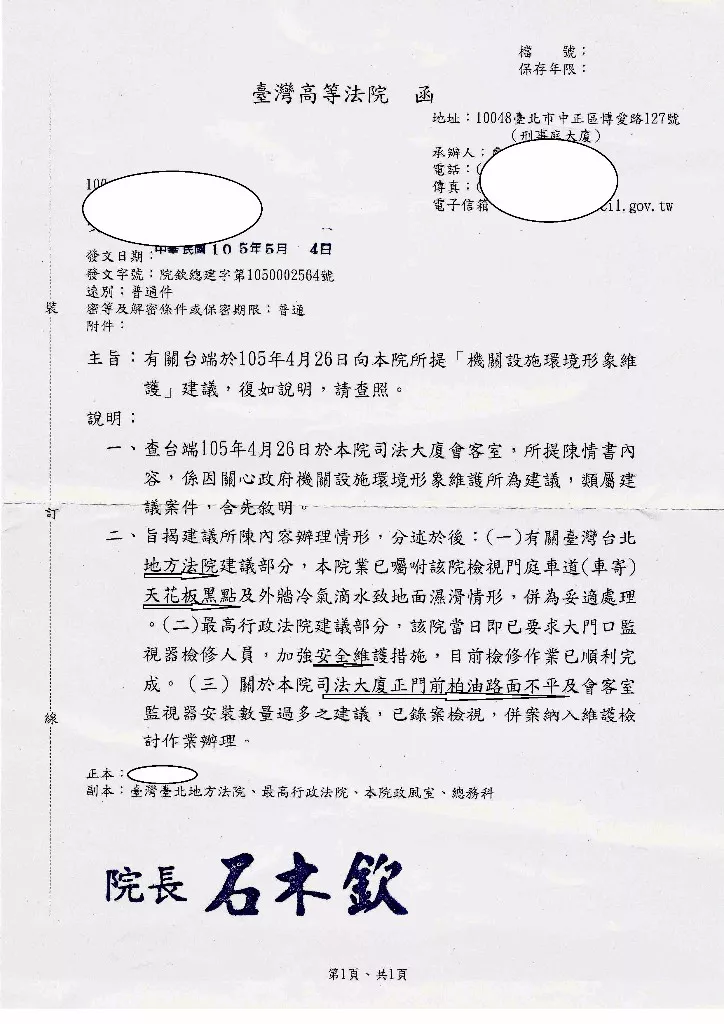 檔　　號：
保存年限：
臺灣高等法院　函
地址：10048臺北市中正區博愛路127號
（刑事庭大廈）
承辦人：
電話：(
傳真：(
電子信箱
cil.gov.tw
100
發文日期：中華民國105年5月 4日
發文字號：院欽總建字第1050002564號
速別：普通件
密等及解密條件或保密期限：普通
附件：
主旨：有關台端於105年4月26日向本院所提「機關設施環境形象維
護」建議，復如說明，請查照。
說明：
一、查台端105年4月26日於本院司法大廈會客室，所提陳情書內
容，係因關心政府機關設施環境形象維護所為建議，類屬建
議案件，合先敘明。
二、旨揭建議所陳內容辦理情形，分述於後：(一)有關臺灣台北
地方法院建議部分，本院業已囑咐該院檢視門庭車道(車寄)
天花板黑點及外牆冷氣滴水致地面濕滑情形，併為妥適處理
。(二)最高行政法院建議部分，該院當日即已要求大門口監
視器檢修人員，加強安全維護措施，目前檢修作業已順利完
成。（三）關於本院司法大廈正門前柏油路面不平及會客室
監視器安裝數量過多之建議，已錄案檢視，併案納入維護檢
討作業辦理。
正本：
副本：臺灣臺北地方法院、最高行政法院、本院政風室、總務科
院長 石木欽
第1頁、共1頁
裝
訂
線